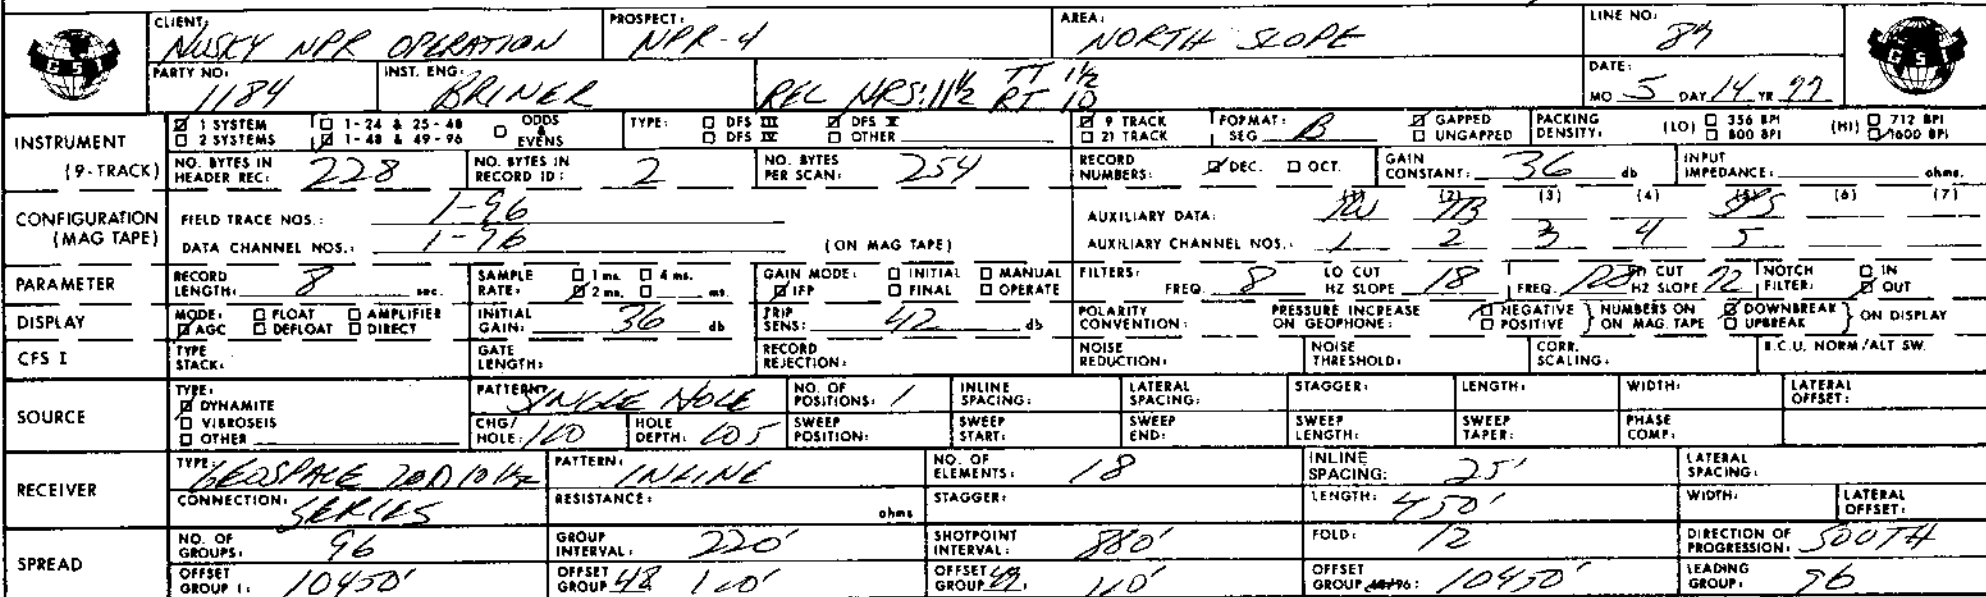 CLIENT: NUSKY NPR OPERATION PROSPECT: NPR-4 AREA: NORTH SLOPE LINE NO:
GSI GSI
PARTY NO: 1184 INST. ENG: BRINER REC HRS: 11½ TT 1½ RT 10 DATE: MO 5 DAY 14 YR 77
INSTRUMENT (9-TRACK) 1 SYSTEM 1-24 & 25-48 ODDS & EVENS TYPE: DFS III DFS V 9 TRACK FORMAT: SEG B GAPPED PACKING DENSITY: (LO) 356 BPI (HI) 712 BPI
2 SYSTEMS 1-48 & 49-96 DFS IV OTHER 21 TRACK UNGAPPED 800 BPI 1600 BPI
NO. BYTES IN HEADER REC: 228 NO. BYTES IN RECORD ID: 2 NO. BYTES PER SCAN: 254 RECORD NUMBERS: DEC. OCT. GAIN CONSTANT: 36 db INPUT IMPEDANCE: ohms.
CONFIGURATION (MAG TAPE) FIELD TRACE NOS.: 1-96 AUXILIARY DATA: (1) (2) TB (3) (4) (5) (6) (7)
DATA CHANNEL NOS.: 1-96 (ON MAG TAPE) AUXILIARY CHANNEL NOS.: 1 2 3 4 5
PARAMETER RECORD LENGTH: 8 sec. SAMPLE RATE: 1 ms. 4 ms. 2 ms. ms. GAIN MODE: INITIAL MANUAL IFP FINAL OPERATE FILTERS: FREQ. 8 LO CUT HZ SLOPE 18 FREQ. HI CUT HZ SLOPE 72 NOTCH FILTER: IN OUT
DISPLAY MODE: FLOAT AMPLIFIER AGC DEFLOAT DIRECT INITIAL GAIN: 36 db TRIP SENS: 42 db POLARITY CONVENTION: PRESSURE INCREASE ON GEOPHONE: NEGATIVE POSITIVE } NUMBERS ON MAG. TAPE DOWNBREAK UPBREAK } ON DISPLAY
CFS I TYPE STACK: GATE LENGTH: RECORD REJECTION: NOISE REDUCTION: NOISE THRESHOLD: CORR. SCALING: R.C.U. NORM/ALT SW.
SOURCE TYPE: DYNAMITE VIBROSEIS OTHER PATTERN: SINGLE HOLE NO. OF POSITIONS: 1 INLINE SPACING: LATERAL SPACING: STAGGER: LENGTH: WIDTH: LATERAL OFFSET:
CHG/HOLE: HOLE DEPTH: SWEEP POSITION: SWEEP START: SWEEP END: SWEEP LENGTH: SWEEP TAPER: PHASE COMP:
RECEIVER TYPE: GEOSPACE 20D 10 Hz PATTERN: INLINE NO. OF ELEMENTS: 18 INLINE SPACING: 25' LATERAL SPACING:
CONNECTION: SERIES RESISTANCE: ohms STAGGER: LENGTH: 450' WIDTH: LATERAL OFFSET:
SPREAD NO. OF GROUPS: 96 GROUP INTERVAL: 220' SHOTPOINT INTERVAL: 880' FOLD: 12 DIRECTION OF PROGRESSION: SOUTH
OFFSET GROUP 1: 10450' OFFSET GROUP 48 110' OFFSET GROUP 49: 110' OFFSET GROUP 48/96: 10450' LEADING GROUP: 96